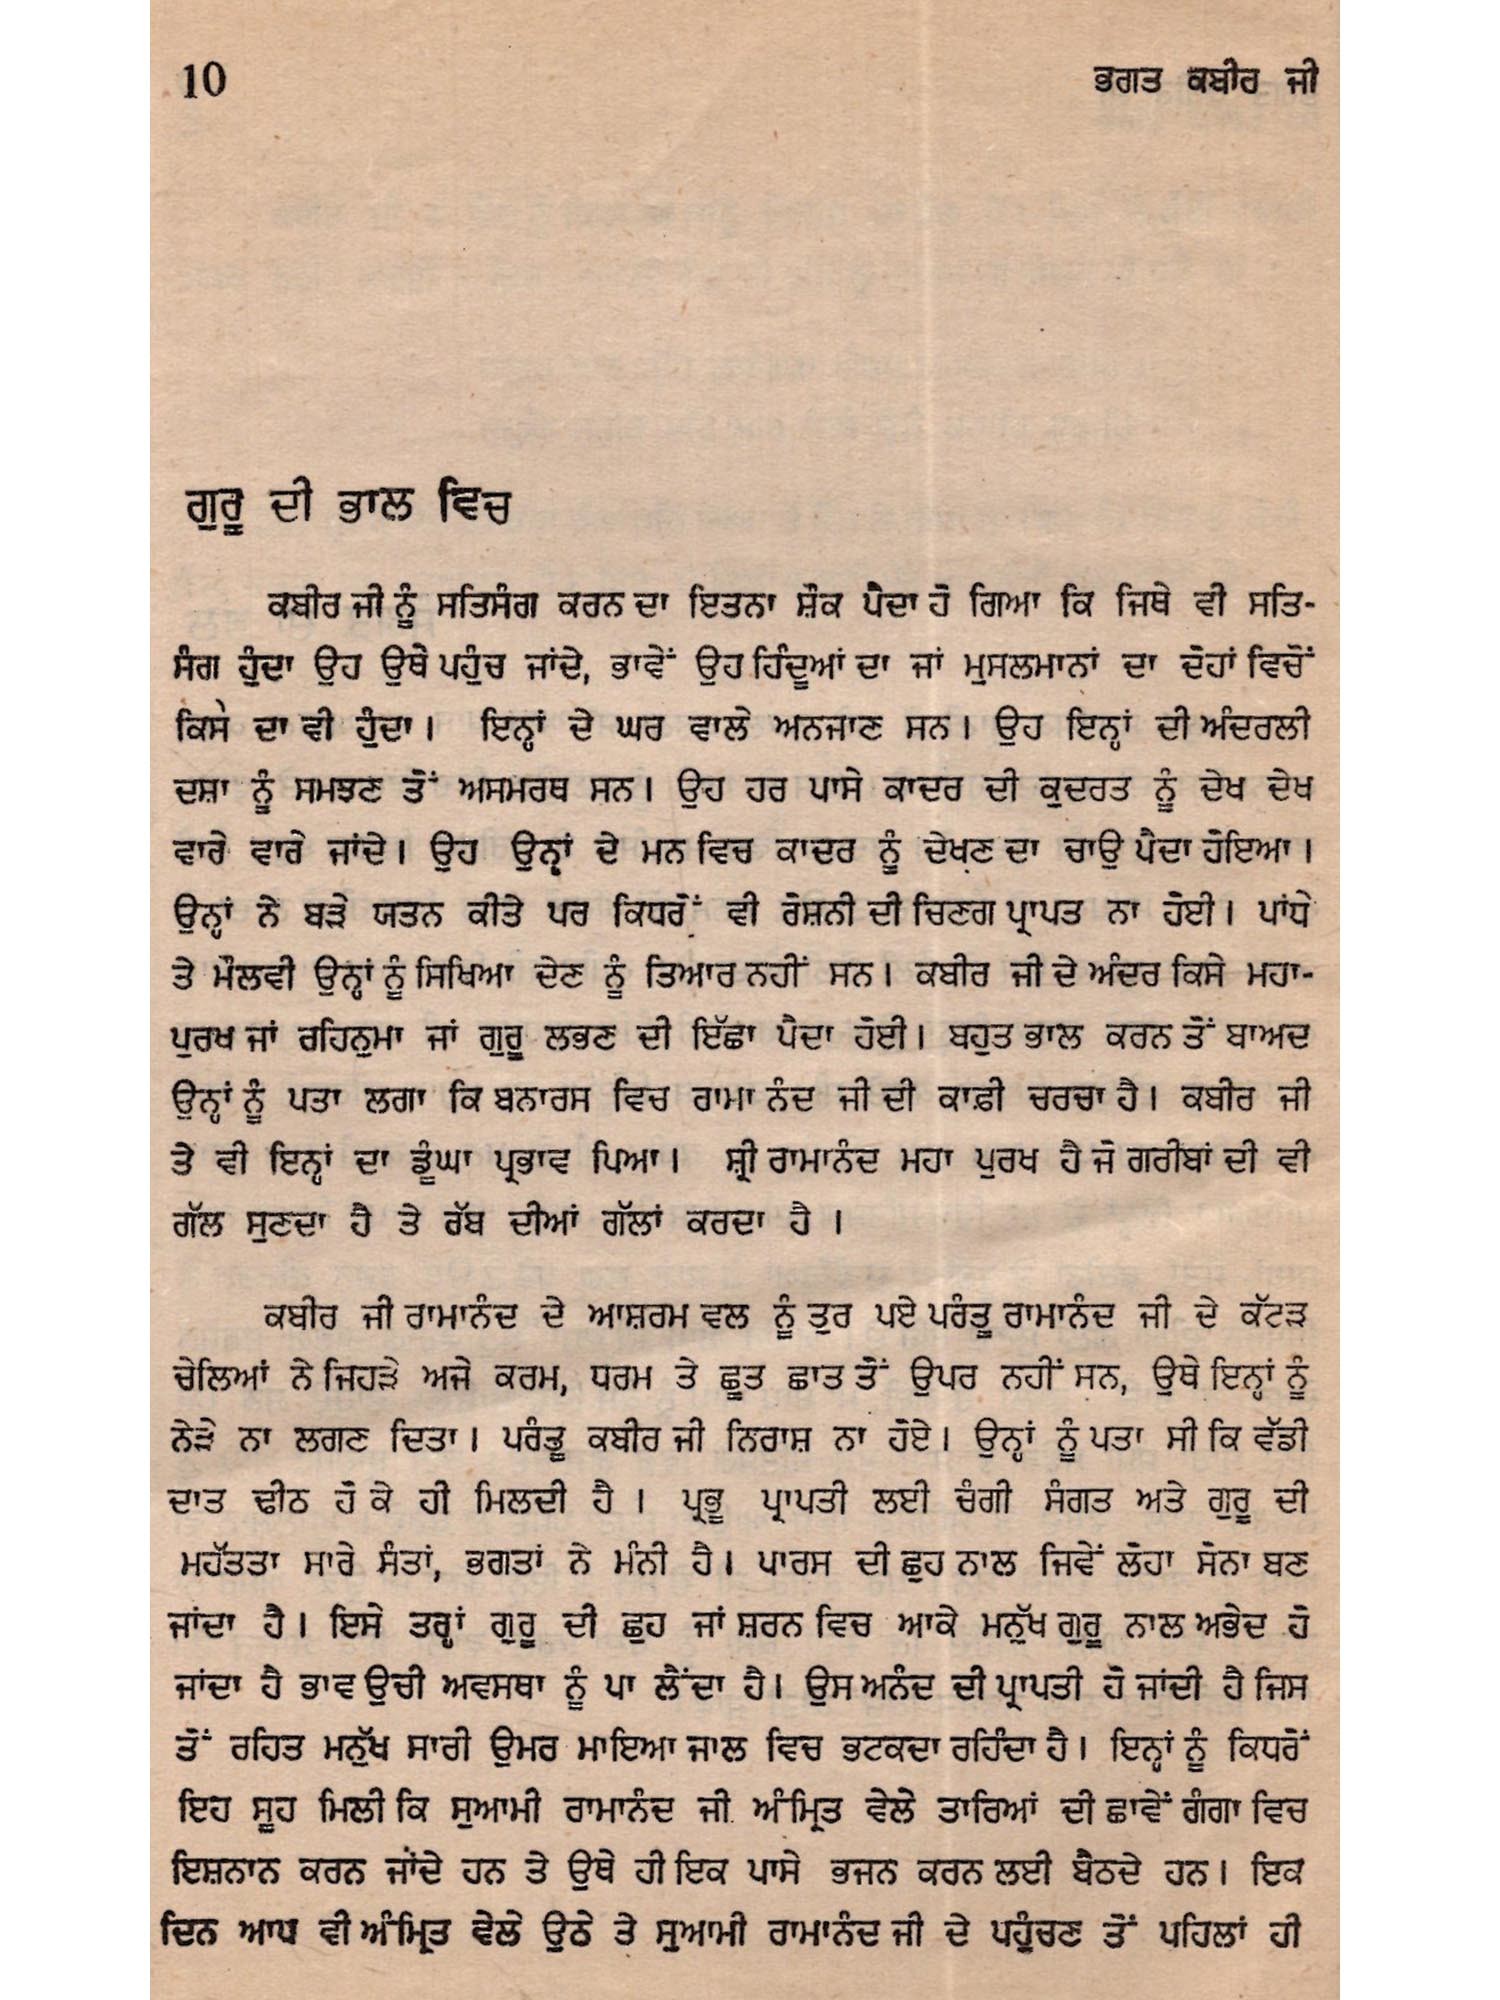 10 ਭਗਤ ਕਬੀਰ ਜੀ
ਗੁਰੂ ਦੀ ਭਾਲ ਵਿਚ
ਕਬੀਰ ਜੀ ਨੂੰ ਸਤਿਸੰਗ ਕਰਨ ਦਾ ਇਤਨਾ ਸ਼ੌਕ ਪੈਦਾ ਹੋ ਗਿਆ ਕਿ ਜਿਥੇ ਵੀ ਸਤਿ-
ਸੰਗ ਹੁੰਦਾ ਉਹ ਉਥੇ ਪਹੁੰਚ ਜਾਂਦੇ, ਭਾਵੇਂ ਉਹ ਹਿੰਦੂਆਂ ਦਾ ਜਾਂ ਮੁਸਲਮਾਨਾਂ ਦਾ ਦੋਹਾਂ ਵਿਚੋਂ
ਕਿਸੇ ਦਾ ਵੀ ਹੁੰਦਾ। ਇਨ੍ਹਾਂ ਦੇ ਘਰ ਵਾਲੇ ਅਨਜਾਣ ਸਨ। ਉਹ ਇਨ੍ਹਾਂ ਦੀ ਅੰਦਰਲੀ
ਦਸ਼ਾ ਨੂੰ ਸਮਝਣ ਤੋਂ ਅਸਮਰਥ ਸਨ। ਉਹ ਹਰ ਪਾਸੇ ਕਾਦਰ ਦੀ ਕੁਦਰਤ ਨੂੰ ਦੇਖ ਦੇਖ
ਵਾਰੇ ਵਾਰੇ ਜਾਂਦੇ। ਉਹ ਉਨ੍ਹਾਂ ਦੇ ਮਨ ਵਿਚ ਕਾਦਰ ਨੂੰ ਦੇਖਣ ਦਾ ਚਾਉ ਪੈਦਾ ਹੋਇਆ।
ਉਨ੍ਹਾਂ ਨੇ ਬੜੇ ਯਤਨ ਕੀਤੇ ਪਰ ਕਿਧਰੋਂ ਵੀ ਰੋਸ਼ਨੀ ਦੀ ਚਿਣਗ ਪ੍ਰਾਪਤ ਨਾ ਹੋਈ। ਪਾਂਧੇ
ਤੇ ਮੌਲਵੀ ਉਨ੍ਹਾਂ ਨੂੰ ਸਿਖਿਆ ਦੇਣ ਨੂੰ ਤਿਆਰ ਨਹੀਂ ਸਨ। ਕਬੀਰ ਜੀ ਦੇ ਅੰਦਰ ਕਿਸੇ ਮਹਾ-
ਪੁਰਖ ਜਾਂ ਰਹਿਨੁਮਾ ਜਾਂ ਗੁਰੂ ਲਭਣ ਦੀ ਇੱਛਾ ਪੈਦਾ ਹੋਈ। ਬਹੁਤ ਭਾਲ ਕਰਨ ਤੋਂ ਬਾਅਦ
ਉਨ੍ਹਾਂ ਨੂੰ ਪਤਾ ਲਗਾ ਕਿ ਬਨਾਰਸ ਵਿਚ ਰਾਮਾ ਨੰਦ ਜੀ ਦੀ ਕਾਫ਼ੀ ਚਰਚਾ ਹੈ। ਕਬੀਰ ਜੀ
ਤੇ ਵੀ ਇਨ੍ਹਾਂ ਦਾ ਡੂੰਘਾ ਪ੍ਰਭਾਵ ਪਿਆ। ਸ਼੍ਰੀ ਰਾਮਾਨੰਦ ਮਹਾ ਪੁਰਖ ਹੈ ਜੋ ਗਰੀਬਾਂ ਦੀ ਵੀ
ਗੱਲ ਸੁਣਦਾ ਹੈ ਤੇ ਰੱਬ ਦੀਆਂ ਗੱਲਾਂ ਕਰਦਾ ਹੈ ।
ਕਬੀਰ ਜੀ ਰਾਮਾਨੰਦ ਦੇ ਆਸ਼ਰਮ ਵਲ ਨੂੰ ਤੁਰ ਪਏ ਪਰੰਤੂ ਰਾਮਾਨੰਦ ਜੀ ਦੇ ਕੱਟੜ
ਚੇਲਿਆਂ ਨੇ ਜਿਹੜੇ ਅਜੇ ਕਰਮ, ਧਰਮ ਤੇ ਛੂਤ ਛਾਤ ਤੋਂ ਉਪਰ ਨਹੀਂ ਸਨ, ਉਥੇ ਇਨ੍ਹਾਂ ਨੂੰ
ਨੇੜੇ ਨਾ ਲਗਣ ਦਿਤਾ। ਪਰੰਤੂ ਕਬੀਰ ਜੀ ਨਿਰਾਸ਼ ਨਾ ਹੋਏ। ਉਨ੍ਹਾਂ ਨੂੰ ਪਤਾ ਸੀ ਕਿ ਵੱਡੀ
ਦਾਤ ਢੀਠ ਹੋ ਕੇ ਹੀ ਮਿਲਦੀ ਹੈ । ਪ੍ਰਭੂ ਪ੍ਰਾਪਤੀ ਲਈ ਚੰਗੀ ਸੰਗਤ ਅਤੇ ਗੁਰੂ ਦੀ
ਮਹੱਤਤਾ ਸਾਰੇ ਸੰਤਾਂ, ਭਗਤਾਂ ਨੇ ਮੰਨੀ ਹੈ। ਪਾਰਸ ਦੀ ਛੁਹ ਨਾਲ ਜਿਵੇਂ ਲੋਹਾ ਸੋਨਾ ਬਣ
ਜਾਂਦਾ ਹੈ। ਇਸੇ ਤਰ੍ਹਾਂ ਗੁਰੂ ਦੀ ਛੁਹ ਜਾਂ ਸ਼ਰਨ ਵਿਚ ਆਕੇ ਮਨੁੱਖ ਗੁਰੂ ਨਾਲ ਅਭੇਦ ਹੋ
ਜਾਂਦਾ ਹੈ ਭਾਵ ਉਚੀ ਅਵਸਥਾ ਨੂੰ ਪਾ ਲੈਂਦਾ ਹੈ। ਉਸ ਅਨੰਦ ਦੀ ਪ੍ਰਾਪਤੀ ਹੋ ਜਾਂਦੀ ਹੈ ਜਿਸ
ਤੋਂ ਰਹਿਤ ਮਨੁੱਖ ਸਾਰੀ ਉਮਰ ਮਾਇਆ ਜਾਲ ਵਿਚ ਭਟਕਦਾ ਰਹਿੰਦਾ ਹੈ। ਇਨ੍ਹਾਂ ਨੂੰ ਕਿਧਰੋਂ
ਇਹ ਸੂਹ ਮਿਲੀ ਕਿ ਸੁਆਮੀ ਰਾਮਾਨੰਦ ਜੀ ਅੰਮ੍ਰਿਤ ਵੇਲੇ ਤਾਰਿਆਂ ਦੀ ਛਾਵੇਂ ਗੰਗਾ ਵਿਚ
ਇਸ਼ਨਾਨ ਕਰਨ ਜਾਂਦੇ ਹਨ ਤੇ ਉਥੇ ਹੀ ਇਕ ਪਾਸੇ ਭਜਨ ਕਰਨ ਲਈ ਬੈਠਦੇ ਹਨ। ਇਕ
ਦਿਨ ਆਪ ਵੀ ਅੰਮ੍ਰਿਤ ਵੇਲੇ ਉਠੇ ਤੇ ਸੁਆਮੀ ਰਾਮਾਨੰਦ ਜੀ ਦੇ ਪਹੁੰਚਣ ਤੋਂ ਪਹਿਲਾਂ ਹੀ